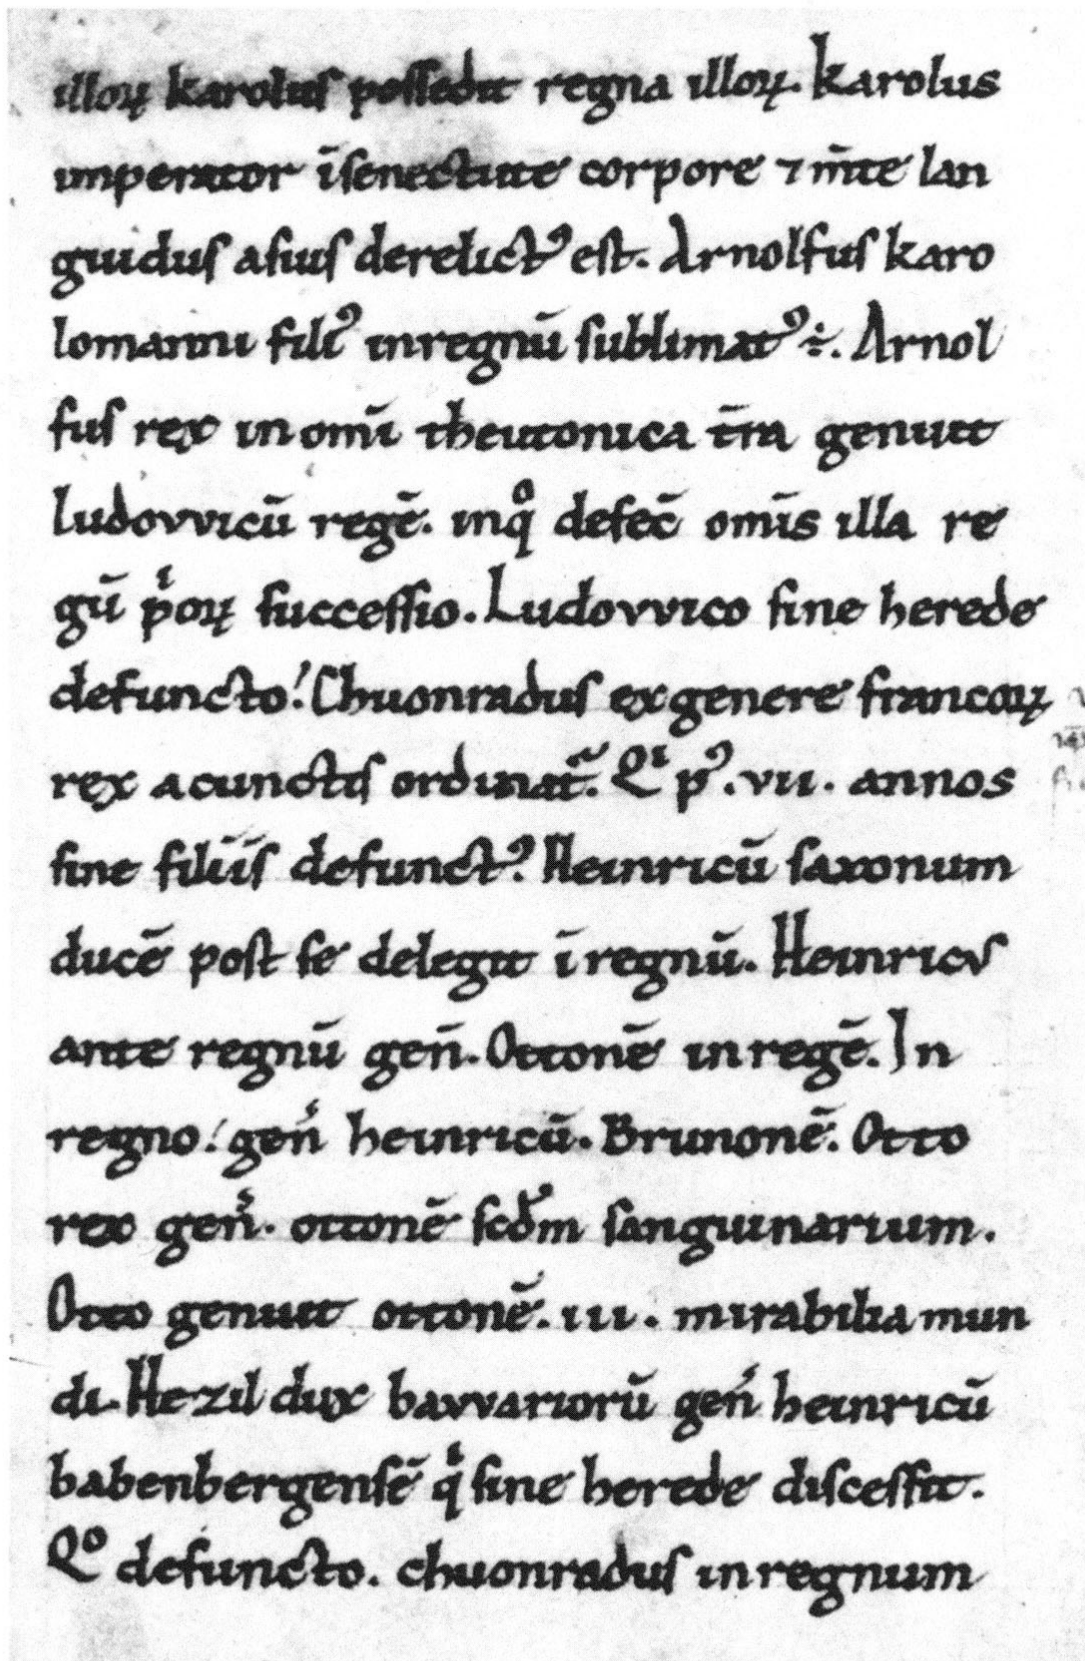 illoꝝ karolus possedit regna illoꝝ. Karolus
imperator īsenectute corpore ⁊ m̄te lan
guidus asuis derelictꝰ est. Arnolfus karo
lomanni filiꝰ inregnū sublimatꝰ ÷. Arnol
fus rex in omī theutonica t̄ra genuit
ludovvicū regē. inqͦ defec̄ omīs illa re
gū pͥoꝝ successio. Ludovvico sine herede
defuncto! Chuonradus exgenere francoꝝ
rex acunctis ordinat᷑. Qͥ pꝰ .vii. annos
sine filiis defunctꝰ. Heinricū saxonum
ducē post se delegit ī regnū. Heinricus
ante regnū gen̄. Ottonē inregē. In
regno! gen̄ heinricū. Brunonē. Otto
rex gen̄. ottonē scdm̄ sanguinarium.
Otto genuit ottonē. iii. mirabilia mun
di. Hezil dux bavvariorū gen̄ heinricū
babenbergensē qͥ sine herede discessit.
Qͦ defuncto. chuonradus inregnum